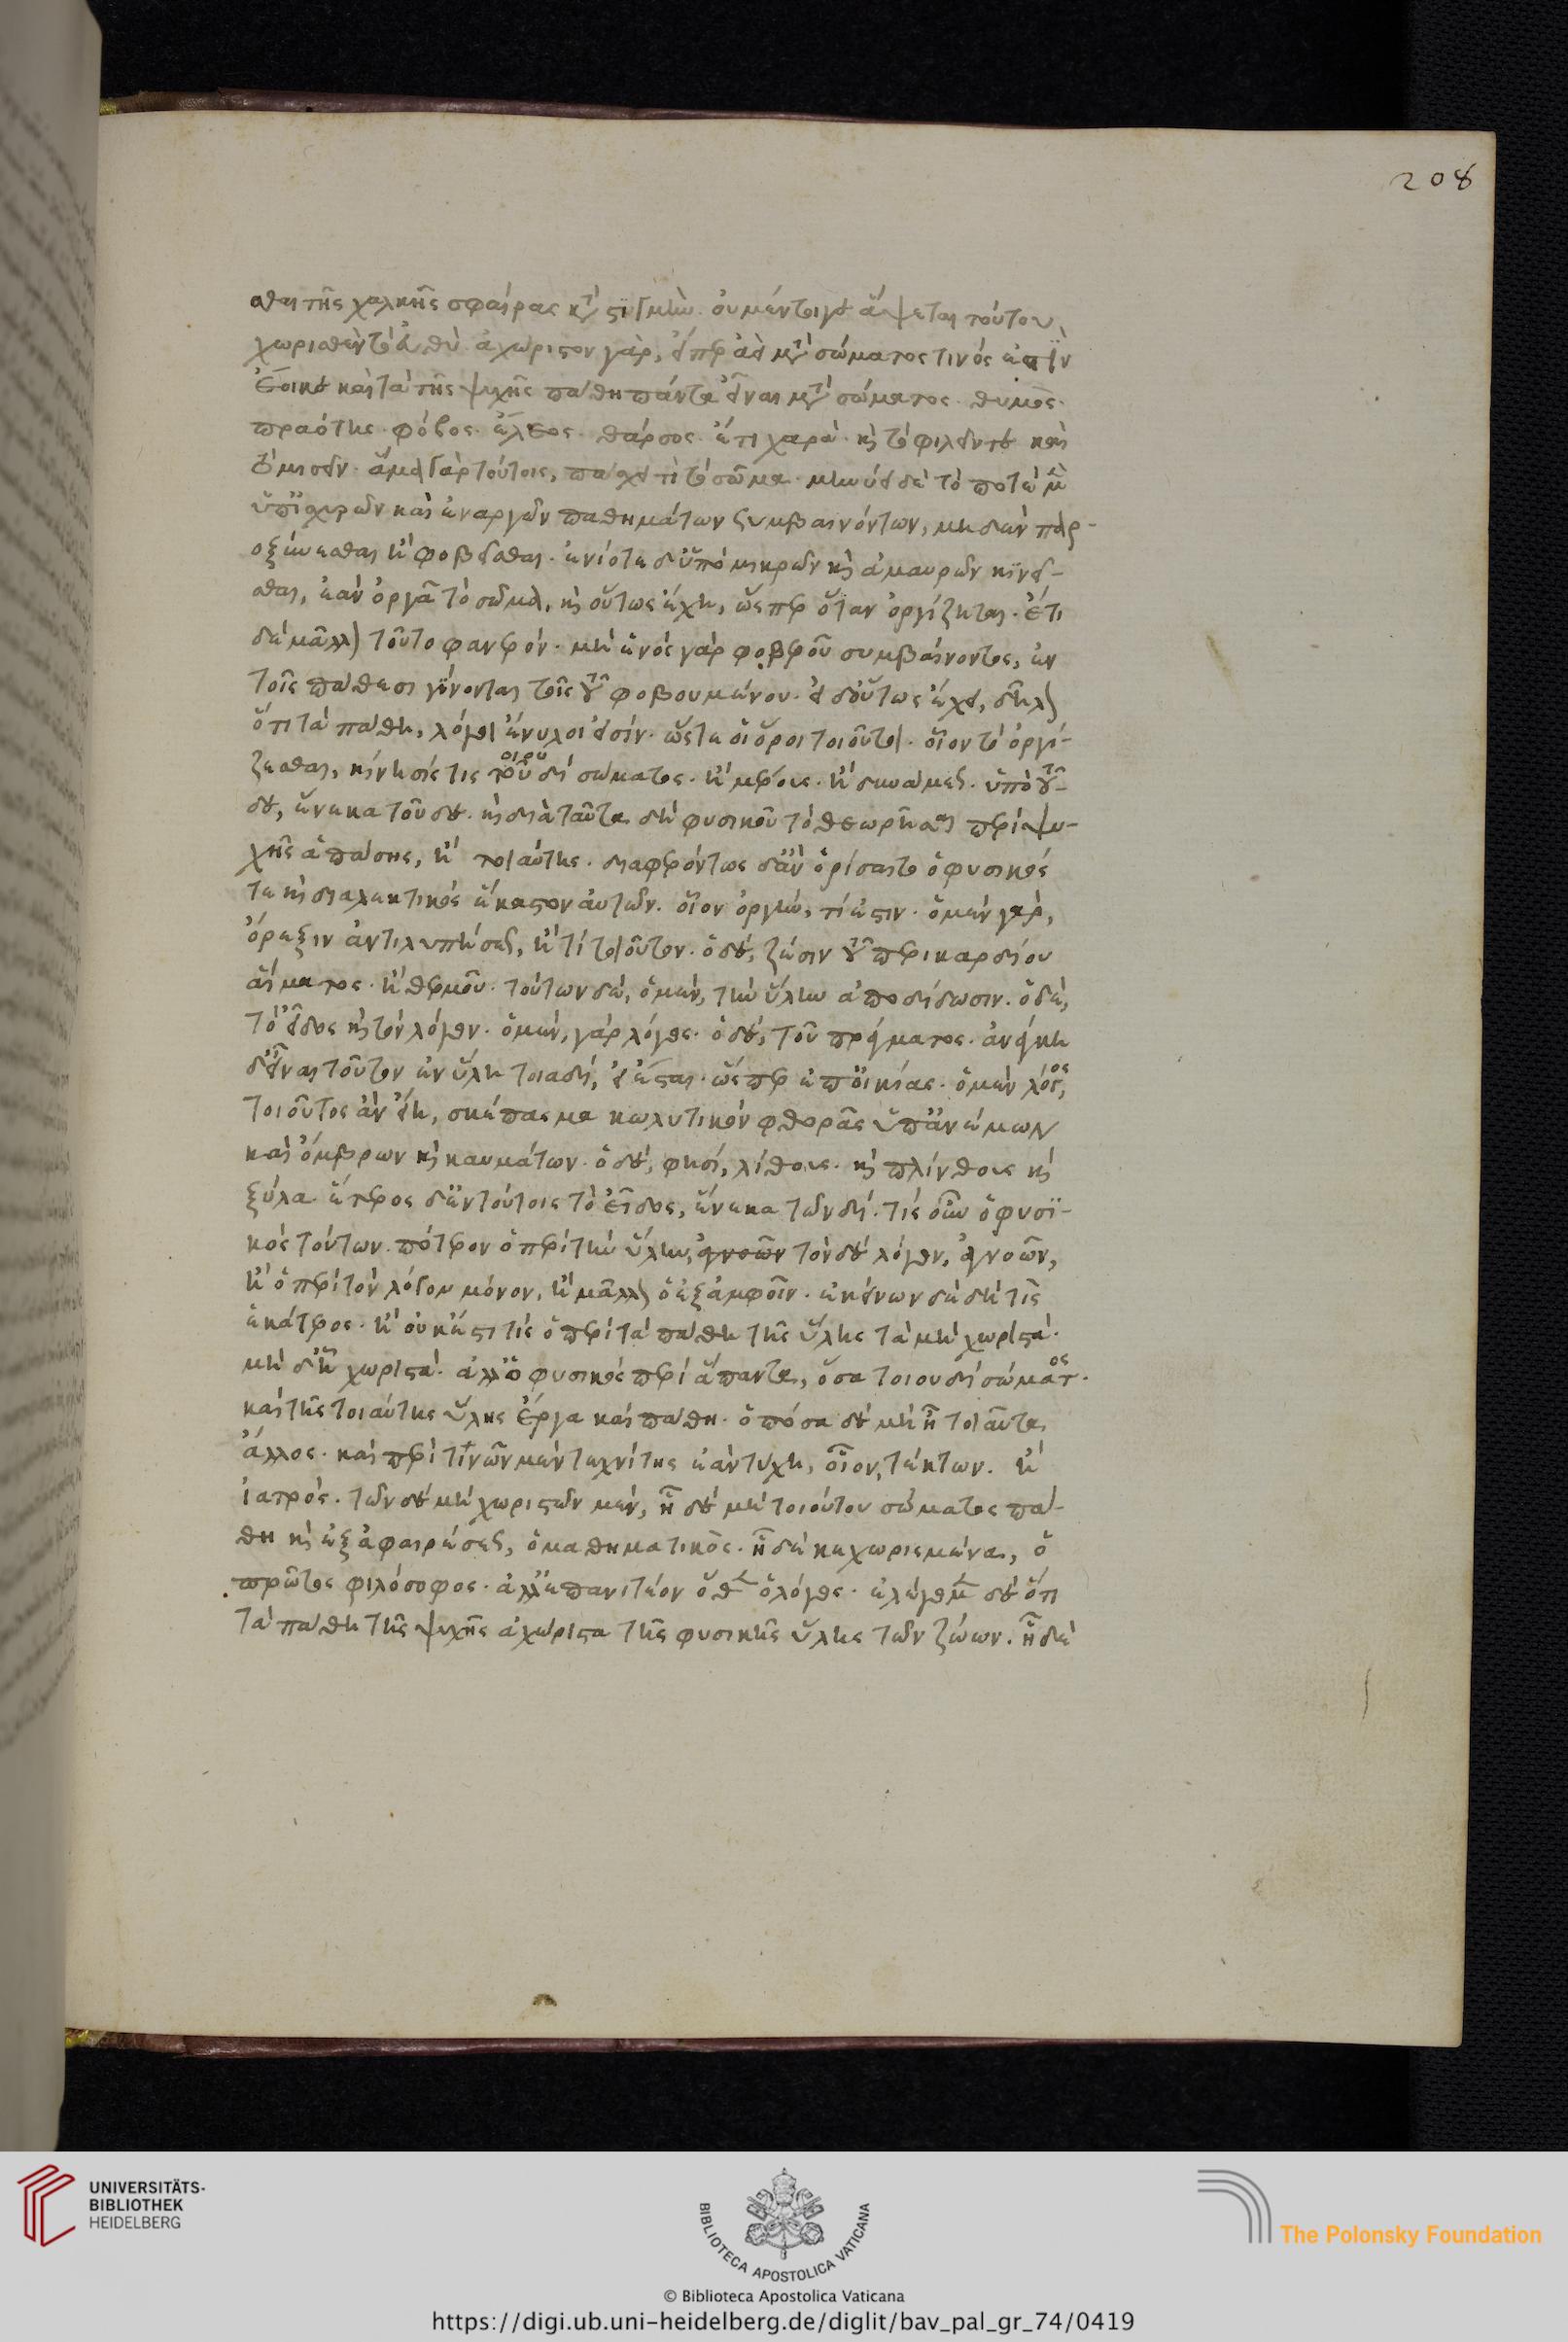 σθαι τῆς χαλκῆς σφαίρας κατὰ στιγμήν. οὐ μέντοι γε ἅψεται τούτου
χωρισθὲν τὸ εὐθύ. ἀχώριστον γὰρ, εἴπερ ἀεὶ μετὰ σώματος τινός ἐστιν
ἔοικε καὶ τὰ τῆς ψυχῆς πάθη πάντα εἶναι μετὰ σώματος. θυμὸς.
πραότης. φόβος. ἔλεος. θάρσος. ἔτι χαρὰ. καὶ τὸ φιλεῖν τε καὶ
τὸ μισεῖν. ἅμα γὰρ τούτοις, πάσχει τὶ τὸ σῶμα. μηνύει δὲ τὸ ποτὲ μὲν
ὑπ' ἰσχυρῶν καὶ ἐναργῶν παθημάτων συμβαινόντων, μηδὲν παρ-
οξύνεσθαι ἢ φοβεῖσθαι. ἐνίοτε δ' ὑπὸ μικρῶν καὶ ἀμαυρῶν κινεῖ-
σθαι, ἐὰν ὀργᾷ τὸ σῶμα, καὶ οὕτως ἔχη, ὥσπερ ὅταν ὀργίζηται. ἔτι
δὲ μᾶλλον τοῦτο φανερόν. μηθενός γὰρ φοβεροῦ συμβαίνοντος, ἐν
τοῖς πάθεσι γίνονται τοῖς τοῦ φοβουμένου. εἰ δ' οὕτως ἔχει, δῆλον
ὅτι τὰ πάθη, λόγοι ἔνυλοι εἰσίν. ὥστε οἱ ὅροι τοιοῦτοι. οἷον τὸ ὀργί-
ζεσθαι, κίνησίς τις τοιουδὶ σώματος. ἢ μέρους. ἢ δυνάμεως. ὑπὸ τοῦ-
δε, ἕνεκα τοῦδε. καὶ διὰ ταῦτα δὴ φυσικοῦ τὸ θεωρῆσαι περὶ ψυ-
χῆς ἢ πάσης, ἢ τοιαύτης. διαφερόντως δ' ἂν ὁρίσαιτο ὁ φυσικός
τε καὶ διαλεκτικός ἕκαστον αὐτῶν. οἷον ὀργὴ, τί ἐστιν. ὁ μὲν γὰρ,
ὄρεξιν ἀντιλυπήσεως, ἢ τί τοιοῦτον. ὁ δὲ, ζέσιν τοῦ περικαρδίου
αἵματος. ἢ θερμοῦ. τούτων δὲ, ὁ μὲν, τὴν ὕλην ἀποδίδωσιν. ὁ δὲ,
τὸ εἶδος καὶ τὸν λόγον. ὁ μὲν, γὰρ λόγος. ὅδε, τοῦ πράγματος. ἀνάγκη
δ' εἶναι τοῦτον ἐν ὕλη τοιαδὶ, εἰ ἔσται. ὥσπερ ἐπ' οἰκίας. ὁ μὲν λόγος,
τοιοῦτος ἂν εἴη, σκέπασμα κωλυτικόν φθορᾶς ὑπ' ἀνέμων
καὶ ὄμβρων καὶ καυμάτων. ὁ δὲ, φησί, λίθους. καὶ πλίνθους καὶ
ξύλα. ἕτερος δ' ἐν τούτοις τὸ εἶδος, ἕνεκα τῶνδί. τίς οὖν ὁ φυσι-
κός τούτων. πότερον ὁ περὶ τὴν ὕλην, ἀγνοῶν τὸν δὲ λόγον, ἀγνοῶν,
ἢ ὁ περὶ τὸν λόγον μόνον, ἢ μᾶλλον ὁ ἐξ ἀμφοῖν. ἐκείνων δὲ δὴ τίς
ἑκάτερος. ἢ οὐκ ἔστι τίς ὁ περὶ τὰ πάθη τῆς ὕλης τὰ μὴ χωριστά.
μὴ δ' ᾗ χωριστά. ἀλλ' ὁ φυσικός περὶ ἅπαντα, ὅσα τοιουδὶ σώματος.
καὶ τῆς τοιαύτης ὕλης ἔργα καὶ πάθη. ὁπόσα δὲ μὴ ᾗ τοιαῦτα
ἄλλος. καὶ περὶ τινῶν μὲν τεχνίτης ἐὰν τύχη, οἷον, τέκτων. ἢ
ἰατρός. τῶν δὲ μὴ χωριστῶν μὲν, ᾗ δὲ μὴ τοιούτου σώματος πά-
θη καὶ ἐξ ἀφαιρέσεως, ὁ μαθηματικὸς. ᾗ δὲ κεχωρισμένα, ὁ
πρῶτος φιλόσοφος. ἀλλ' ἐπανιτέον ὅθεν ὁ λόγος. ἐλέγομεν δὲ ὅτι
τὰ πάθη τῆς ψυχῆς ἀχώριστα τῆς φυσικῆς ὕλης τῶν ζώων. ᾗ δὲ
208
UNIVERSITÄTS-
BIBLIOTHEK
HEIDELBERG
BIBLIOTECA APOSTOLICA VATICANA
The Polonsky Foundation
© Biblioteca Apostolica Vaticana
https://digi.ub.uni-heidelberg.de/diglit/bav_pal_gr_74/0419